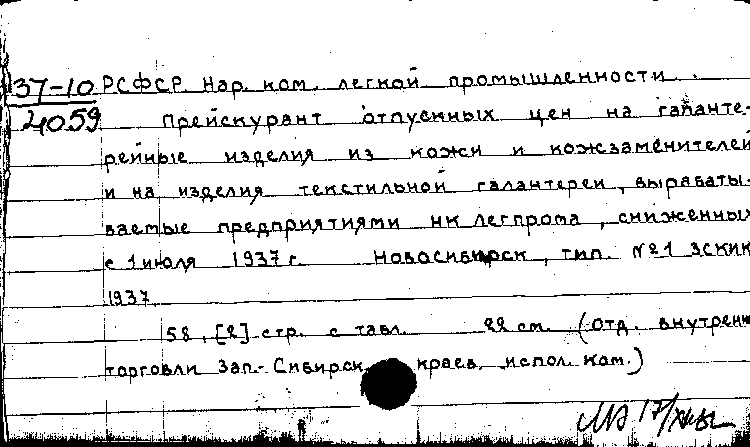 37-10 РСФСР Нар. ком. легкой промышленности.
4059 Прейскурант отпускных цен на галанте-
рейные изделия из кожи и кожзаменителей
и на изделия текстильной галантереи, вырабаты-
ваемые предприятиями НК Легпрома, сниженных
с 1 июля 1937 г. Новосибирск, тип. №1 ЗСКИК
1937
58, [2] стр. с табл. 22 см. (Отд. внутренн
торговли Зап.-Сибирск. краев. испол. ком.)
17/